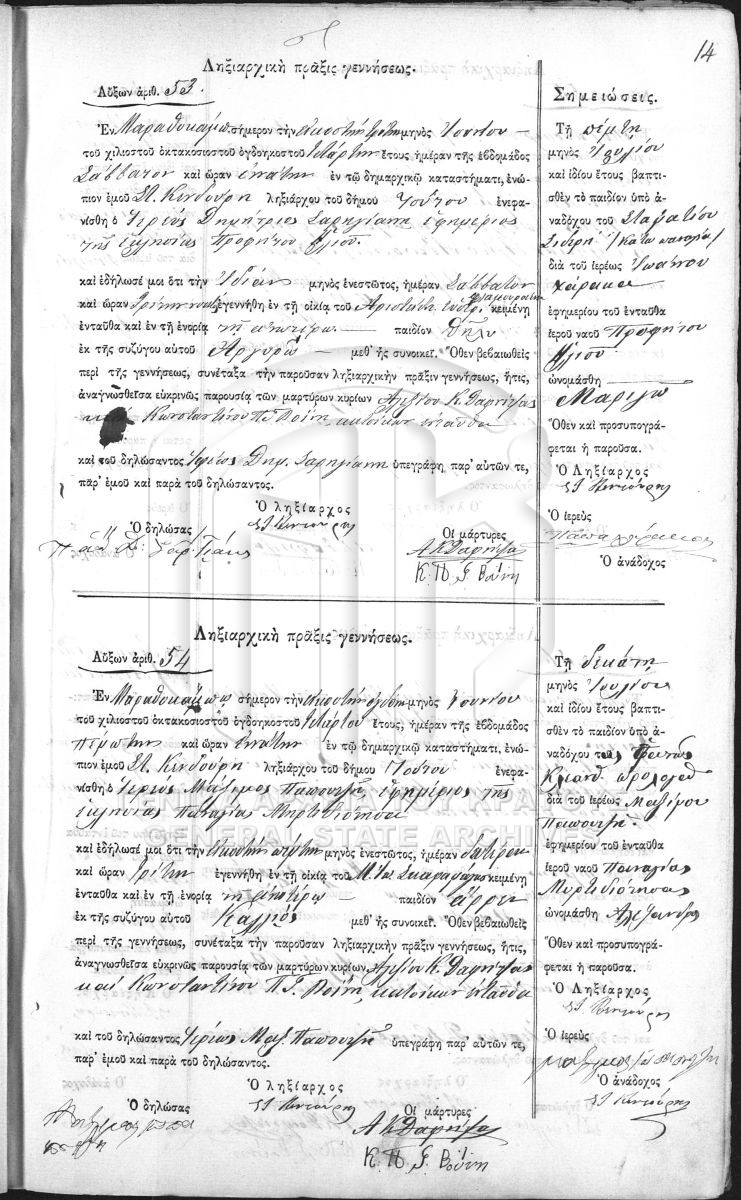 14
Ληξιαρχικὴ πρᾶξις γεννήσεως.
Αὔξων ἀριθ. 53.
Ἐν Μαραθοκάμπῳ σήμερον τὴν εἰκοστὴν τρίτην μηνὸς Ἰουνίου
τοῦ χιλιοστοῦ ὀκτακοσιοστοῦ ὀγδοηκοστοῦ τετάρτου ἔτους, ἡμέραν τῆς ἑβδομάδος
Σάββατον καὶ ὥραν ἐνάτην ἐν τῷ δημαρχικῷ καταστήματι, ἐνώ-
πιον ἐμοῦ Στ. Κενδούρη ληξιάρχου τοῦ δήμου τούτου ἐνεφα-
νίσθη ὁ Ἱερεὺς Δημήτριος Σαρηγιάννη ἐφημέριος
τῆς ἐκκλησίας Προφήτου Ἠλιού
καὶ ἐδήλωσέ μοι ὅτι τὴν ἰδίαν μηνὸς ἐνεστῶτος, ἡμέραν Σάββατον
καὶ ὥραν τρίτην ἐγεννήθη ἐν τῇ οἰκίᾳ τοῦ κειμένῃ
ἐνταῦθα καὶ ἐν τῇ ἐνορίᾳ τῇ ἀνωτέρω παιδίον θῆλυ
ἐκ τῆς συζύγου αὐτοῦ Ἀργυρῶ μεθ' ἧς συνοικεῖ. Ὅθεν βεβαιωθεὶς
περὶ τῆς γεννήσεως, συνέταξα τὴν παροῦσαν ληξιαρχικὴν πρᾶξιν γεννήσεως, ἥτις,
ἀναγνωσθεῖσα εὐκρινῶς παρουσίᾳ τῶν μαρτύρων κυρίων Ἀλεξίου Κ. Δαφνίζας
Κωνσταντίνου Π. Γ. Βοΐνη, κατοίκων ἐνταῦθα
καὶ τοῦ δηλώσαντος Ἱερέως Δημ. Σαρηγιάννη ὑπεγράφη παρ' αὐτῶν τε,
παρ' ἐμοῦ καὶ παρὰ τοῦ δηλώσαντος.
Ὁ ληξίαρχος
Ὁ δηλώσας
Οἱ μάρτυρες
Α Κ Δαφνίζας
Κ. Π. Γ. Βοΐνη
Σημειώσεις.
Τῇ πέμπτῃ
μηνὸς Ἰουλίου
καὶ ἰδίου ἔτους βαπτι-
σθὲν τὸ παιδίον ὑπὸ ἀ-
ναδόχου τοῦ Σταματίου
διὰ τοῦ ἱερέως Ἰωάννου
ἐφημερίου τοῦ ἐνταῦθα
ἱεροῦ ναοῦ Προφήτου
Ἠλιού
ὠνομάσθη
Μαριγώ
Ὅθεν καὶ προσυπογρά-
φεται ἡ παροῦσα.
Ὁ Ληξίαρχος
Ὁ ἱερεὺς
Ὁ ἀνάδοχος
Ληξιαρχικὴ πρᾶξις γεννήσεως.
Αὔξων ἀριθ. 54
Ἐν Μαραθοκάμπῳ σήμερον τὴν εἰκοστὴν ὀγδόην μηνὸς Ἰουνίου
τοῦ χιλιοστοῦ ὀκτακοσιοστοῦ ὀγδοηκοστοῦ τετάρτου ἔτους, ἡμέραν τῆς ἑβδομάδος
Πέμπτην καὶ ὥραν ἐνάτην ἐν τῷ δημαρχικῷ καταστήματι, ἐνώ-
πιον ἐμοῦ Στ. Κενδούρη ληξιάρχου τοῦ δήμου τούτου ἐνεφα-
νίσθη ὁ Ἱερεὺς Μάξιμος Παπουτζῆ ἐφημέριος τῆς
ἐκκλησίας Παναγίας Μυρτιδιώτησας
καὶ ἐδήλωσέ μοι ὅτι τὴν εἰκοστὴν πέμπτην μηνὸς ἐνεστῶτος, ἡμέραν Δευτέραν
καὶ ὥραν τρίτην ἐγεννήθη ἐν τῇ οἰκίᾳ τοῦ κειμένῃ
ἐνταῦθα καὶ ἐν τῇ ἐνορίᾳ τῇ ἀνωτέρω παιδίον ἄρρεν
ἐκ τῆς συζύγου αὐτοῦ μεθ' ἧς συνοικεῖ. Ὅθεν βεβαιωθεὶς
περὶ τῆς γεννήσεως, συνέταξα τὴν παροῦσαν ληξιαρχικὴν πρᾶξιν γεννήσεως, ἥτις,
ἀναγνωσθεῖσα εὐκρινῶς παρουσίᾳ τῶν μαρτύρων κυρίων Ἀλεξίου Κ. Δαφνίζας
καὶ Κωνσταντίνου Π. Γ. Βοΐνη, κατοίκων ἐνταῦθα
καὶ τοῦ δηλώσαντος Ἱερέως Μαξ. Παπουτζῆ ὑπεγράφη παρ' αὐτῶν τε,
παρ' ἐμοῦ καὶ παρὰ τοῦ δηλώσαντος.
Ὁ ληξίαρχος
Ὁ δηλώσας
Οἱ μάρτυρες
Α Κ Δαφνίζας
Κ. Π. Γ. Βοΐνη
Τῇ δεκάτῃ
μηνὸς Ἰουλίου
καὶ ἰδίου ἔτους βαπτι-
σθὲν τὸ παιδίον ὑπὸ ἀ-
ναδόχου
διὰ τοῦ ἱερέως Μαξίμου
Παπουτζῆ
ἐφημερίου τοῦ ἐνταῦθα
ἱεροῦ ναοῦ Παναγίας
Μυρτιδιώτησας
ὠνομάσθη Ἀλέξανδρος
Ὅθεν καὶ προσυπογρά-
φεται ἡ παροῦσα.
Ὁ Ληξίαρχος
Ὁ ἱερεὺς
Ὁ ἀνάδοχος
ΓΕΝΙΚΑ ΑΡΧΕΙΑ ΤΟΥ ΚΡΑΤΟΥΣ
GENERAL STATE ARCHIVES